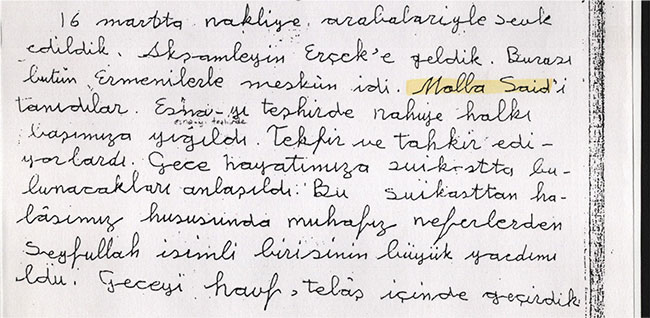 16 martta nakliye arabalariyle sevk
edildik. Akşamleyin Erçek'e geldik. Burası
bütün Ermenilerle meskûn idi. Molla Said'i
tanıdılar. Esna-yı teşhirde nahiye halkı
esna-yı teşhirde
başımıza yığıldı. Tekfir ve tahkir edi-
yorlardı. Gece hayatımıza suikastta bu-
lunacakları anlaşıldı. Bu suikasttan ha-
lâsımız hususunda muhafız neferlerden
Seyfullah isimli birisinin büyük yardımı
ldu. Geceyi havf, telâş içinde geçirdik